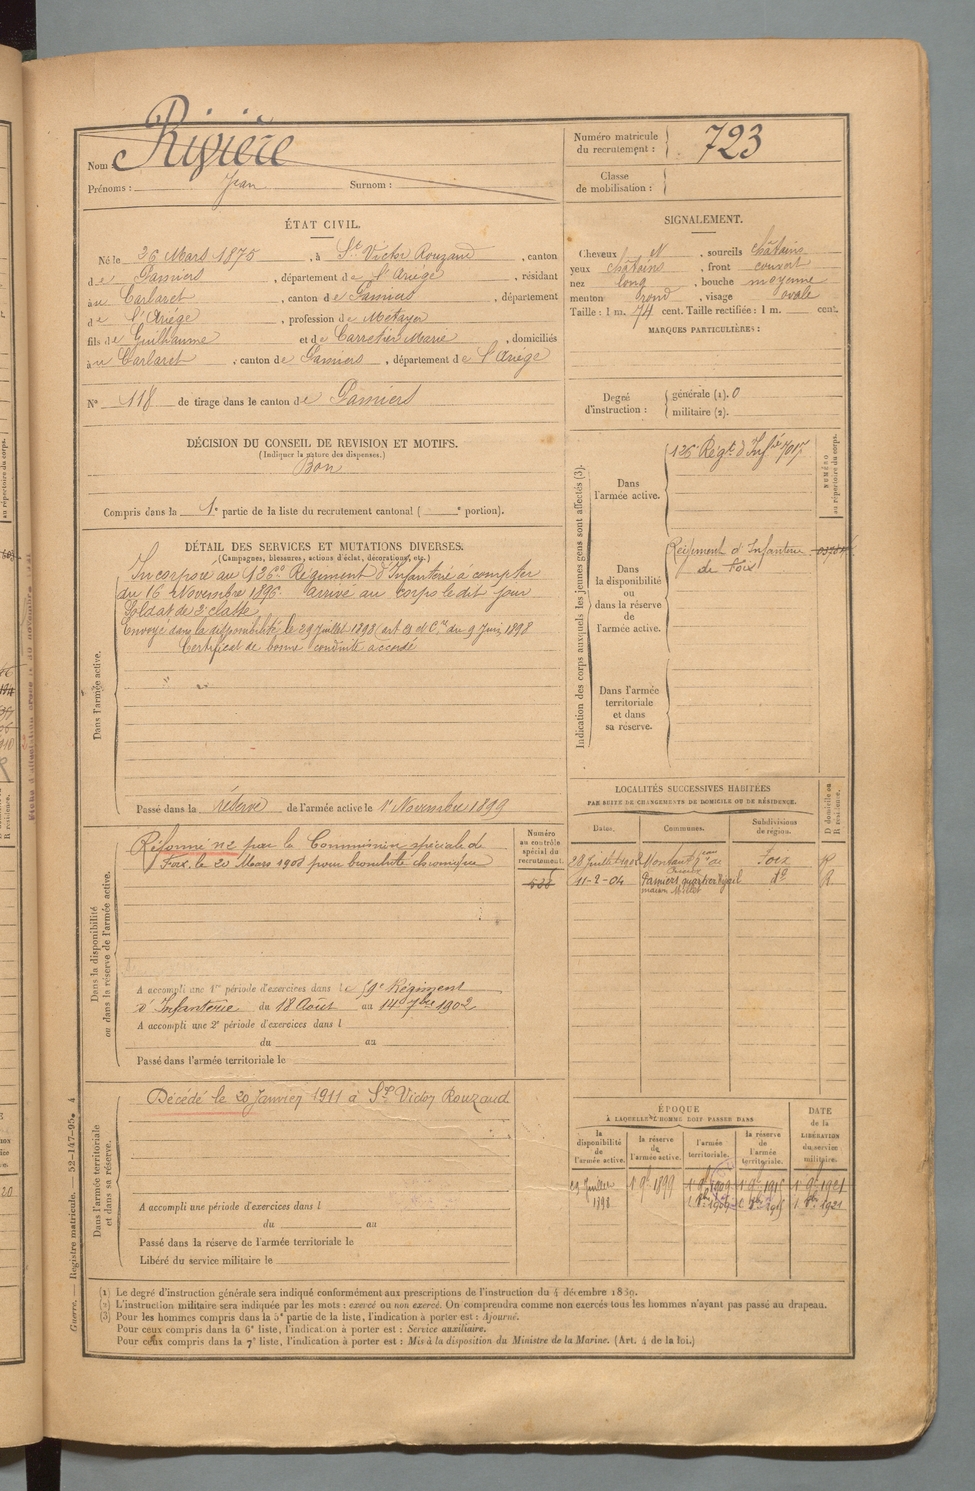 Nom Rivière
Prénoms : Jean Surnom :
Numéro matricule du recrutement : 723
Classe de mobilisation :
ÉTAT CIVIL.
Né le 26 Mars 1875, à St Victor Rouzaud, canton
de Pamiers, département de l'Ariège, résidant
à Carlaret, canton de Pamiers, département
de l'Ariège, profession de Métayer
fils de Guilhaume et de Carretier Marie, domiciliés
à Carlaret, canton de Pamiers, département de l'Ariège
N° 118 de tirage dans le canton de Pamiers
SIGNALEMENT.
Cheveux N, sourcils châtains
yeux châtains, front couvert
nez long, bouche moyenne
menton rond, visage ovale
Taille : 1 m. 74 cent. Taille rectifiée : 1 m. cent.
MARQUES PARTICULIÈRES :
Degré d'instruction : générale (1). 0
militaire (2).
DÉCISION DU CONSEIL DE REVISION ET MOTIFS.
(Indiquer la nature des dispenses.)
Bon
Compris dans la 1e partie de la liste du recrutement cantonal ( e portion).
DÉTAIL DES SERVICES ET MUTATIONS DIVERSES.
(Campagnes, blessures, actions d'éclat, décorations, etc.)
Dans l'armée active.
Incorporé au 126e Régiment d'Infanterie à compter
du 16 Novembre 1896. Arrivé au corps le dit jour
Soldat de 2e classe
Envoyé dans la disponibilité le 29 Juillet 1898 (art et Cre du 9 Juin 1898
Certificat de bonne conduite accordé
Passé dans la réserve de l'armée active le 1er Novembre 1899
Indication des corps auxquels les jeunes gens sont affectés (3).
NUMÉRO au répertoire du corps.
Dans l'armée active.
126e Régt d'Infrie
Dans la disponibilité ou dans la réserve de l'armée active.
Régiment d'Infanterie
de Foix
Dans l'armée territoriale et dans sa réserve.
Dans la disponibilité ou dans la réserve de l'armée active.
Réformé n°2 par la Commission spéciale de
Foix le 20 Mars 1908 pour bronchite chronique
Numéro au contrôle spécial du recrutement
A accompli une 1re période d'exercices dans le 59e Régiment
d'Infanterie du 18 Août au 14 7bre 1902
A accompli une 2e période d'exercices dans l
du au
Passé dans l'armée territoriale le
LOCALITÉS SUCCESSIVES HABITÉES
PAR SUITE DE CHANGEMENTS DE DOMICILE OU DE RÉSIDENCE.
Dates. Communes. Subdivisions de région. D domicile ou R résidence.
Foix R
11-2-04 Pamiers quartier do R
Dans l'armée territoriale et dans sa réserve.
Décédé le 20 Janvier 1911 à St Victor Rouzaud
A accompli une période d'exercices dans l
du au
Passé dans la réserve de l'armée territoriale le
Libéré du service militaire le
ÉPOQUE
À LAQUELLE L'HOMME DOIT PASSER DANS
la disponibilité de l'armée active. la réserve de l'armée active. l'armée territoriale. la réserve de l'armée territoriale.
DATE de la LIBÉRATION du service militaire.
29 Juillet 1898 1 9bre 1899 1 9bre 1909 1 9bre 1915 1 9bre 1921
Guerre. — Registre matricule. — 52-147-95. 4
(1) Le degré d'instruction générale sera indiqué conformément aux prescriptions de l'instruction du 4 décembre 1889.
(2) L'instruction militaire sera indiquée par les mots : exercé ou non exercé. On comprendra comme non exercés tous les hommes n'ayant pas passé au drapeau.
(3) Pour les hommes compris dans la 5e partie de la liste, l'indication à porter est : Ajourné.
Pour ceux compris dans la 6e liste, l'indication à porter est : Service auxiliaire.
Pour ceux compris dans la 7e liste, l'indication à porter est : Mis à la disposition du Ministre de la Marine. (Art. 4 de la loi.)